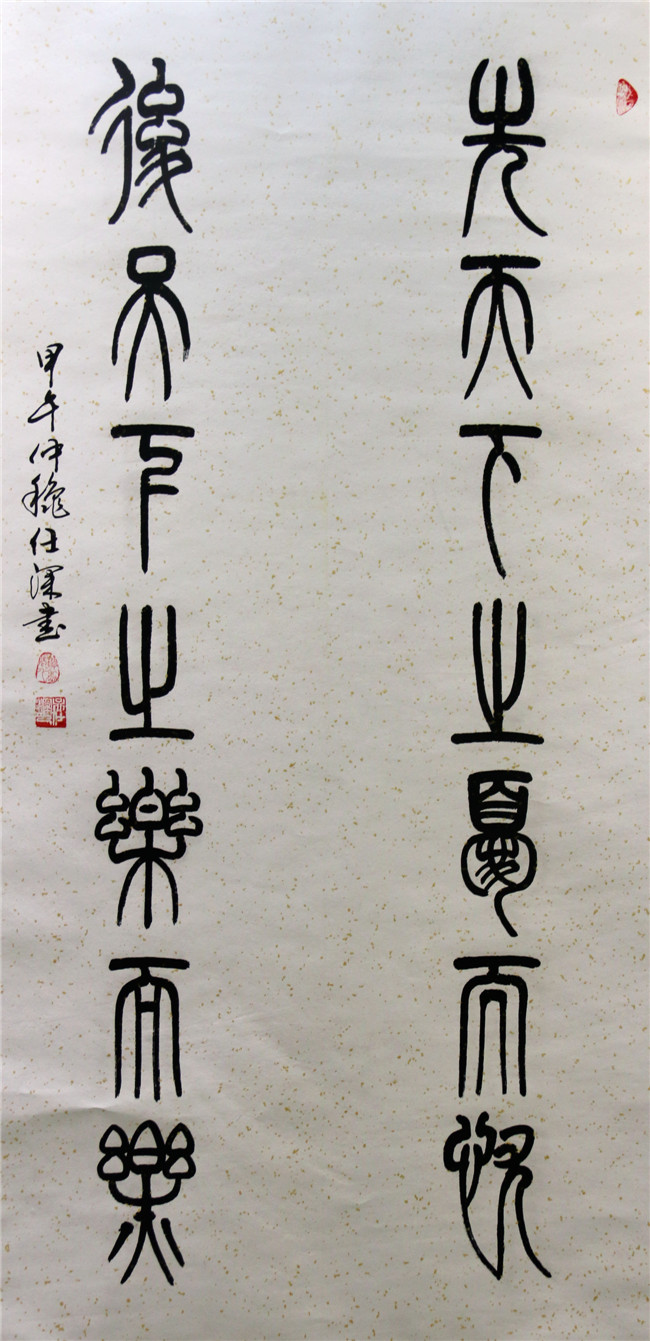 先天下之憂而忧
後天下之樂而樂
甲午仲穐任深書